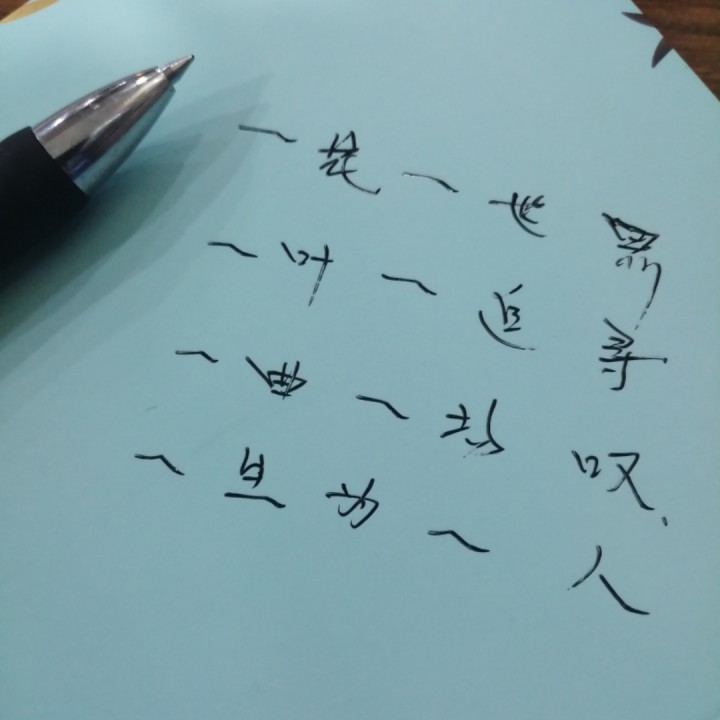 一花一世界
一叶一追寻
一曲一场叹
一生为一人